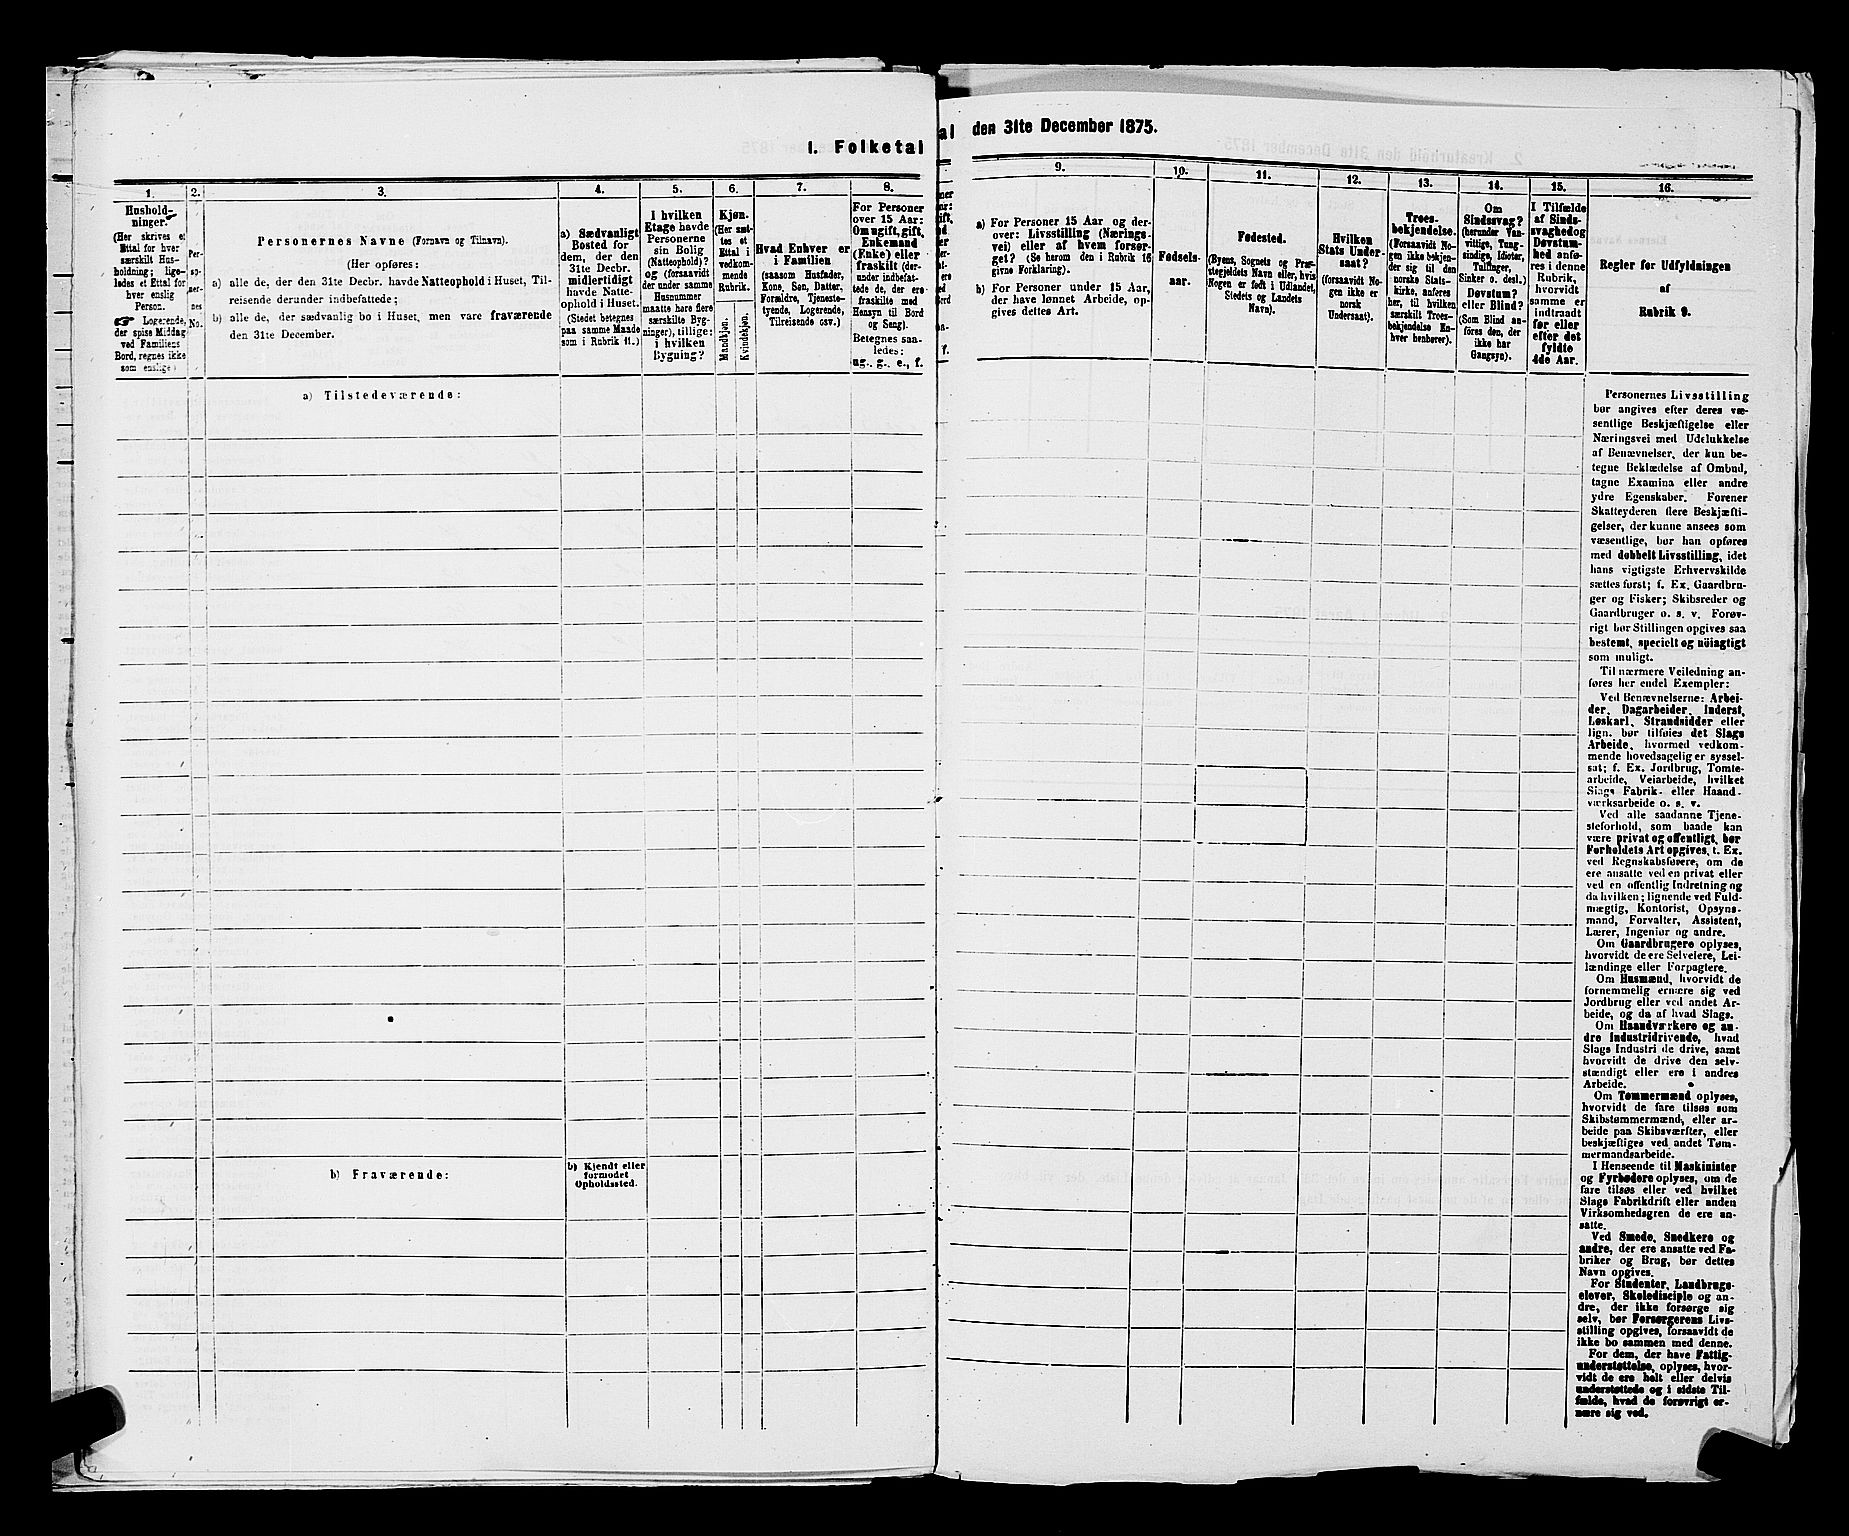 I. Folketal
den 31te December 1875.
1.
Hushold-
ninger.
(Her skrives et
Ettal for hver
særskilt Hus-
holdning; lige-
ledes et Ettal for
hver enslig
Person.
☞ Logerende,
der spise Middag
ved Familiens
Bord, regnes ikke
som enslige)
2.
Per-
so-
ner-
nes
No.
3.
Personernes Navne (Fornavn og Tilnavn).
(Her opføres:
a) alle de, der den 31te Decbr. havde Natteophold i Huset, Til-
reisende derunder indbefattede;
b) alle de, der sædvanlig bo i Huset, men vare fraværende
den 31te December.
4.
a) Sædvanligt
Bosted for
dem, der den
31te Decbr.
midlertidigt
havde Natte-
ophold i Huset.
(Stedet betegnes
paa samme Maade
som i Rubrik 11.)
5.
I hvilken
Etage havde
Personerne
sin Bolig
(Natteophold)?
og (forsaavidt
der under samme
Husnummer
maatte høre flere
særskilte Byg-
ninger), tillige:
i hvilken
Bygning?
6.
Kjøn.
(Her sæt-
tes et
Ettal i
vedkom-
mende
Rubrik.
Mandkjøn.
Kvindekjøn.
7.
Hvad Enhver er
i Familien
(saasom Husfader,
Kone, Søn, Datter,
Forældre, Tjeneste-
tyende, Logerende,
Tilreisende osv.)
8.
For Personer
over 15 Aar:
Om ugift, gift,
Enkemand
(Enke) eller
fraskilt (der-
under indbefat-
tede de, der ere
fraskilte med
Hensyn til Bord
og Seng).
Betegnes saa-
ledes:
ug., g., e., f.
9.
a) For Personer 15 Aar og der-
over: Livsstilling (Nærings-
vei) eller af hvem forsør-
get? (Se herom den i Rubrik 16
givne Forklaring).
b) For Personer under 15 Aar,
der have lønnet Arbeide, op-
gives dettes Art.
10.
Fødsels-
aar.
11.
Fødested.
(Byens, Sognets og Præ-
stegjeldets Navn eller, hvis
Nogen er født i Udlandet,
Stedets og Landets
Navn).
12.
Hvilken
Stats Under-
saat?
(forsaavidt No-
gen ikke er
norsk
Undersaat).
13.
Troes-
bekjendelse.
(Forsaavidt No-
gen ikke bekjen-
der sig til den
norske Stats-
kirke, anføres
her, til hvilken
særskilt Troes-
bekjendelse En-
hver henhører).
14.
Om
Sindssvag?
(herunder Van-
vittige, Tung-
sindige, Idioter,
Tullinger,
Sinker o. desl.)
Døvstum?
eller Blind?
(Som Blind an-
føres den, der
ikke har
Gangsyn).
15.
I Tilfælde
af Sinds-
svaghed og
Døvstum-
hed anfø-
res i denne
Rubrik,
hvorvidt
samme er
indtraadt
før eller
efter det
fyldte
4de Aar.
16.
Regler for Udfyldningen
af
Rubrik 9.
a) Tilstedeværende:
b) Fraværende:
b) Kjendt eller
formodet
Opholdssted.
Personernes Livsstilling
bør angives efter deres væ-
sentlige Beskjæftigelse eller
Næringsvei med Udelukkelse
af Benævnelser, der kun be-
tegne Beklædelse af Ombud,
tagne Examina eller andre
ydre Egenskaber. Forener
Skatteyderen flere Beskjæfti-
gelser, der kunne ansees som
væsentlige, bør han opføres
med dobbelt Livsstilling, idet
hans vigtigste Erhvervskilde
sættes først; f. Ex. Gaardbru-
ger og Fisker; Skibsreder og
Gaardbruger o. s. v. Forøv-
rigt bør Stillingen opgives saa
bestemt, specielt og nöiagtigt
som muligt.
Til nærmere Veiledning an-
føres her endel Exempler:
Ved Benævnelserne: Arbei-
der, Dagarbeider, Inderst,
Løskarl, Strandsidder eller
lign. bør tilføies det Slags
Arbeide, hvormed vedkom-
mende hovedsagelig er syssel-
sat; f. Ex. Jordbrug, Tomte-
arbeide, Veiarbeide, hvilket
Slags Fabrik- eller Haand-
værksarbeide o. s. v.
Ved alle saadanne Tjene-
steforhold, som baade kan
være privat og offentligt, bør
Forholdets Art opgives, f. Ex.
ved Regnskabsførere, om de
ere ansatte ved en privat eller
ved en offentlig Indretning og
da hvilken; lignende ved Fuld-
mægtig, Kontorist, Opsyns-
mand, Forvalter, Assistent,
Lærer, Ingeniør og andre.
Om Gaardbrugere oplyses,
hvorvidt de ere Selveiere, Lei-
lændinge eller Forpagtere.
Om Husmænd, hvorvidt de
fornemmelig ernære sig ved
Jordbrug eller ved andet Ar-
beide, og da af hvad Slags.
Om Haandværkere og an-
dre Industridrivende, hvad
Slags Industri de drive, samt
hvorvidt de drive den selv-
stændigt eller ere i andres
Arbeide.
Om Tømmermænd oplyses,
hvorvidt de fare tilsøs som
Skibstømmermænd, eller ar-
beide paa Skibsværfter, eller
beskjæftiges ved andet Tøm-
mermandsarbeide.
I Henseende til Maskinister
og Fyrbødere oplyses, om de
fare tilsøs eller ved hvilket
Slags Fabrikdrift eller anden
Virksomhedsgren de ere an-
satte.
Ved Smede, Snedkere og
andre, der ere ansatte ved Fa-
briker og Brug, bør dettes
Navn opgives.
For Studenter, Landbrugs-
elever, Skoledisciple og an-
dre, der ikke forsørge sig
selv, bør Forsørgerens Livs-
stilling opgives, forsaavidt de
ikke bo sammen med denne.
For dem, der have Fattig-
understøttelse, oplyses, hvor-
vidt de ere helt eller delvis
understøttede og i sidste Til-
fælde, hvad de forøvrigt er-
nære sig ved.